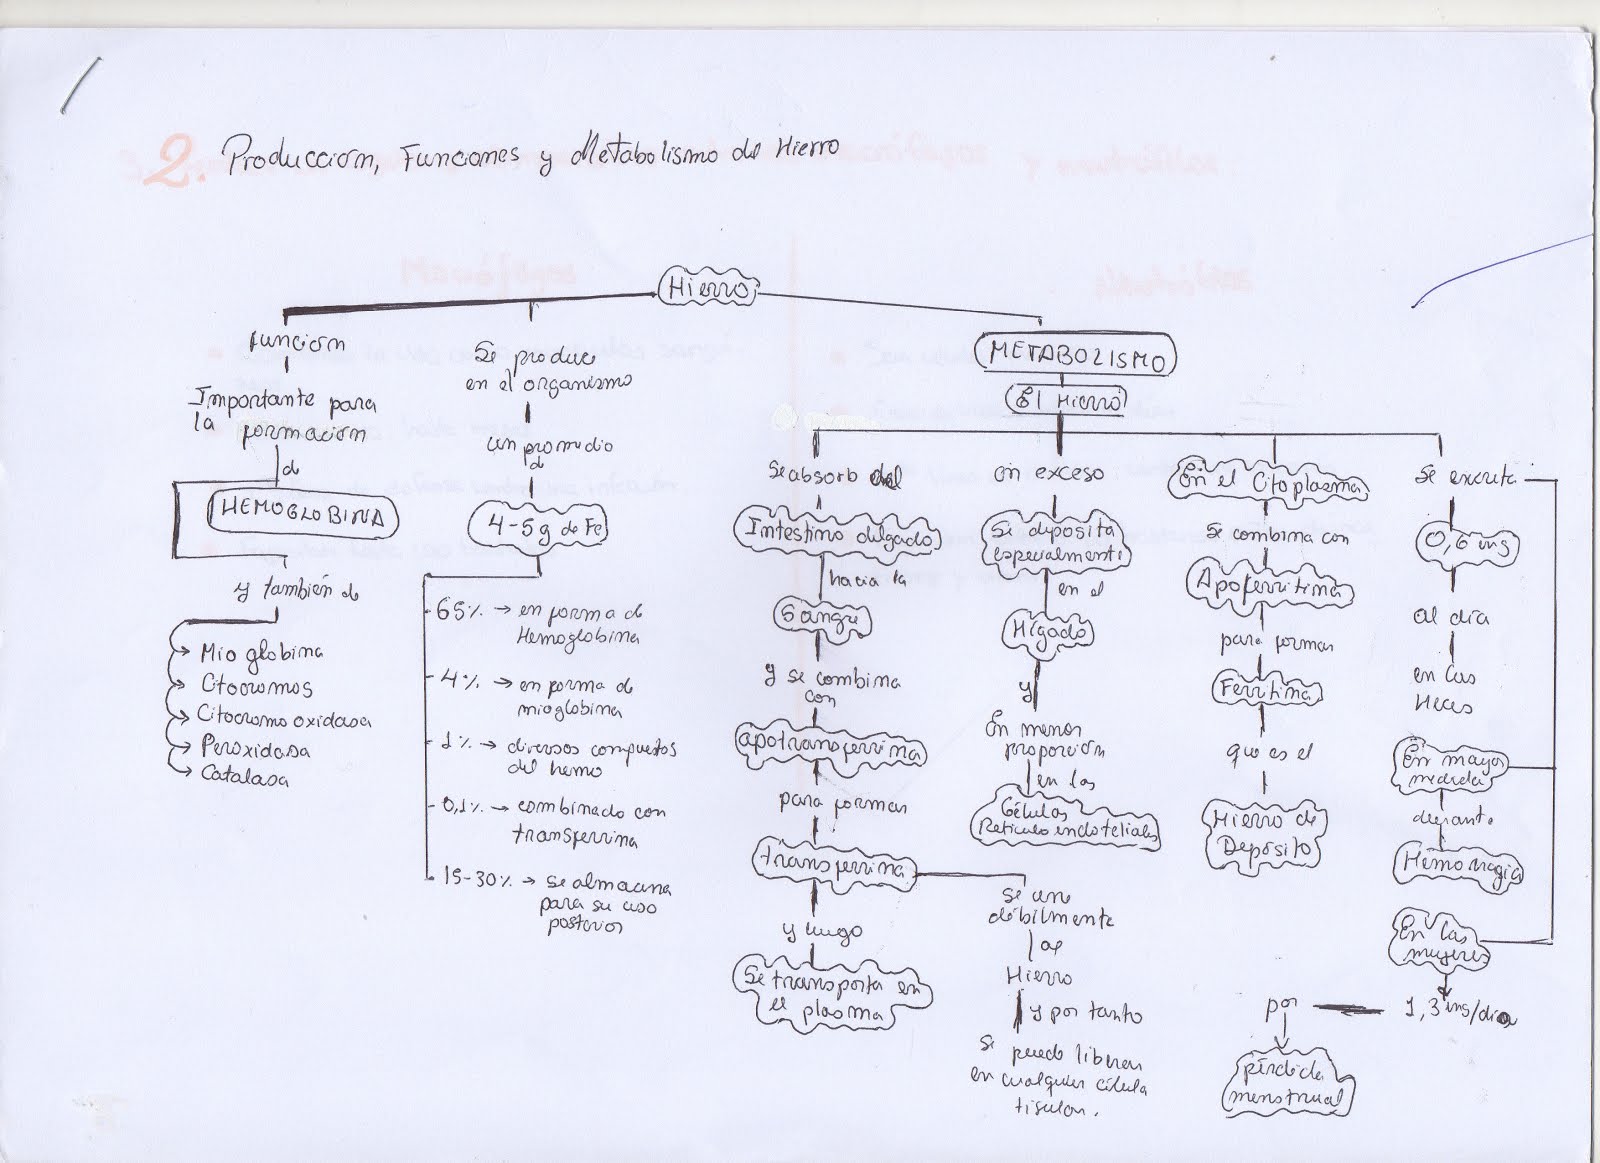 2. Producción, Funciones y Metabolismo de Hierro
Hierro
función
Importante para
la formación
d
HEMOGLOBINA
y también de
Mioglobina
Citocromos
Citocromo oxidasa
Peroxidasa
Catalasa
Se produce
en el organismo
un promedio
d
4-5g de Fe
65% → en forma de
Hemoglobina
4% → en forma de
mioglobina
1% → diversos compuestos
del hemo
0,1% → combinado con
transferrina
15-30% → se almacena
para su uso
posterior
METABOLISMO
El Hierro
Se absorb del
Intestino delgado
hacia la
Sangre
y se combina
con
apotransferrina
para formar
transferrina
y luego
Se transporta en
el plasma
se une
débilmente
al
Hierro
y por tanto
se puede liberar
en cualquier célula
tisular.
en exceso
Se deposita
especialmente
en el
Hígado
y
En menor
proporción
en las
Células
Reticulo endoteliales
En el Citoplasma
Se combina con
Apoferritina
para formar
Ferritina
que es el
Hierro de
Depósito
Se excreta
0,6 mg
al día
en las
Heces
En mayor
medida
durante
Hemorragia
En las
mujeres
1,3 mg/dia
por
pérdida
menstrual